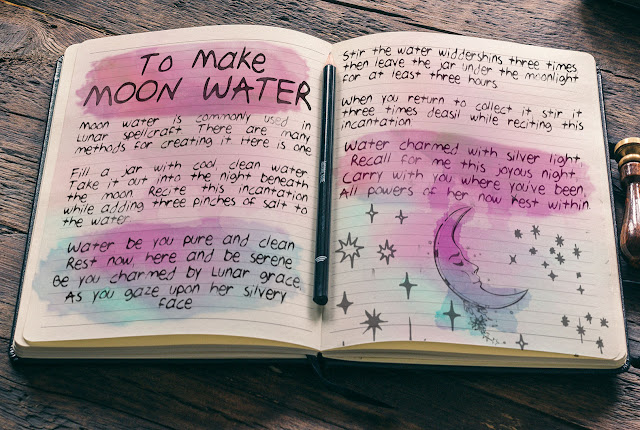 To Make
MOON WATER
Moon water is commonly used in
Lunar spellcraft. There are many
methods for creating it. Here is one
Fill a jar with cool, clean water
Take it out into the night beneath
the moon. Recite this incantation
while adding three pinches of salt to
the water.
Water be you pure and clean
Rest now, here and be serene
Be you charmed by Lunar grace,
As you gaze upon her silvery
face
Stir the water widdershins three times
then leave the jar under the moonlight
for at least three hours
When you return to collect it, stir it
three times deasil while reciting this
incantation
Water charmed with silver light
Recall for me this joyous night,
Carry with you where you've been,
All powers of her now rest within.